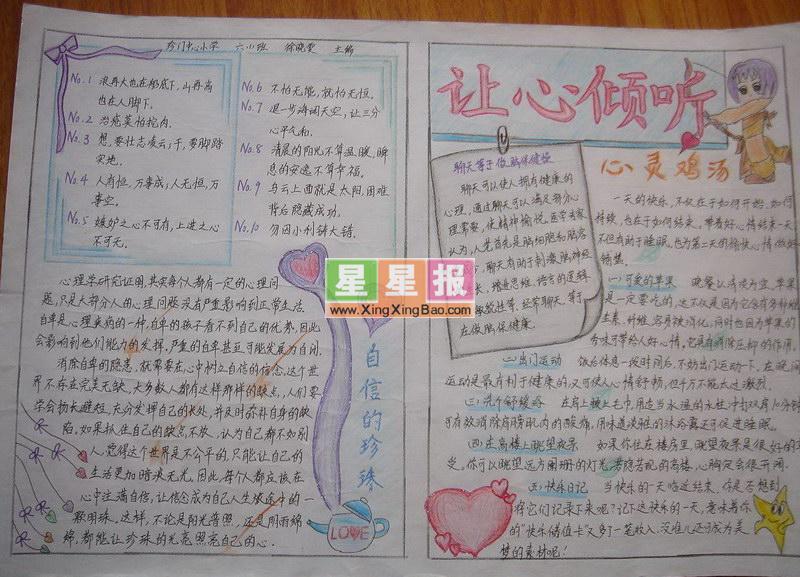 珍门中心小学 六(1)班 徐晓雯 主编
No.1 浪再大也在船底下，山再高
也在人脚下。
No.2 治疮莫怕挖肉。
No.3 想，要壮志凌云；干，要脚踏
实地。
No.4 人有恒，万事成；人无恒，万
事空。
No.5 嫉妒之心不可有，上进之心
不可无。
No.6 不怕无能，就怕无恒。
No.7 退一步海阔天空，让三分
心平气和。
No.8 清晨的阳光不算温暖，瞬
息的安逸不算幸福。
No.9 乌云上面就是太阳，困难
背后隐藏成功。
No.10 勿因小利铸大错。
心理学研究证明，其实每个人都有一定的心理问
题，只是大部分人的心理问题没有严重影响到正常生活。
自卑是心理疾病的一种，自卑的孩子看不到自己的优势，因此
会影响到他们能力的发挥，严重的自卑甚至可能发展为自闭。
消除自卑的隐患，就需要在心中树立自信的信念，这个世
界不存在完美无缺，大多数人都有这样那样的缺点，人们要
学会扬长避短，充分发挥自己的长处，并及时弥补自身的缺
陷。如果抓住自己的缺点不放，认为自己都不如别
人，觉得这个世界是不公平的，只能让自己的
生活更加暗淡无光。因此，每个人都应该在
心中注满自信，让信心成为自己人生旅途中的一
颗明珠。这样，不论是阳光普照，还是阴雨绵
绵，都能让珍珠的光亮照亮自己的心。
自信的珍珠
LOVE
星星报
www.XingXingBao.com
让心倾听
聊天等于做脑保健操
聊天可以使人拥有健康的
心理，通过聊天可以满足部分心
理需要，使精神愉悦。医学专家
认为，人老首先是脑细胞和脑容
聊天有助于刺激脑神经
长，增进思维、语言的逻辑
敏捷性等，经常聊天，等于
在做脑保健操。
心灵鸡汤
一天的快乐，不仅在于如何开始，如何
持续，也在于如何结束。带着好心情结束一天
不但有助于睡眠，也为第二天的愉快心情做好
铺垫。
(一)可爱的苹果 晚餐以清淡为宜，苹果
是一定要吃的，这不仅是因为它含有多种维
生素、纤维，容易被消化，同时也因为苹果的
香味可带给人好心情，它具有消除压抑的作用。
(二)出门运动 饭后休息一段时间后，不妨出门运动一下，在晚间
运动是最有利于健康的，又可使人心情舒畅，但千万不能太过激烈。
(三)洗个舒缓浴 在肩上披上毛巾，用适当水温的水柱冲打双肩10分钟
可有效消除肩膀肌肉的酸痛，用味道淡雅的沐浴露还可促进睡眠。
(四)在高楼上眺望夜景 如果你住在楼房里，眺望夜景是很好的享
受。你可以眺望远方阑珊的灯光，若隐若现的高楼，心胸定会很开阔。
(五)快乐日记 当快乐的一天临近结束，你是否想到
将它们记录下来呢？记下这快乐的一天，意味着你
的“快乐储值卡”又多了一笔收入，没准儿还可成为美
梦的素材呢！